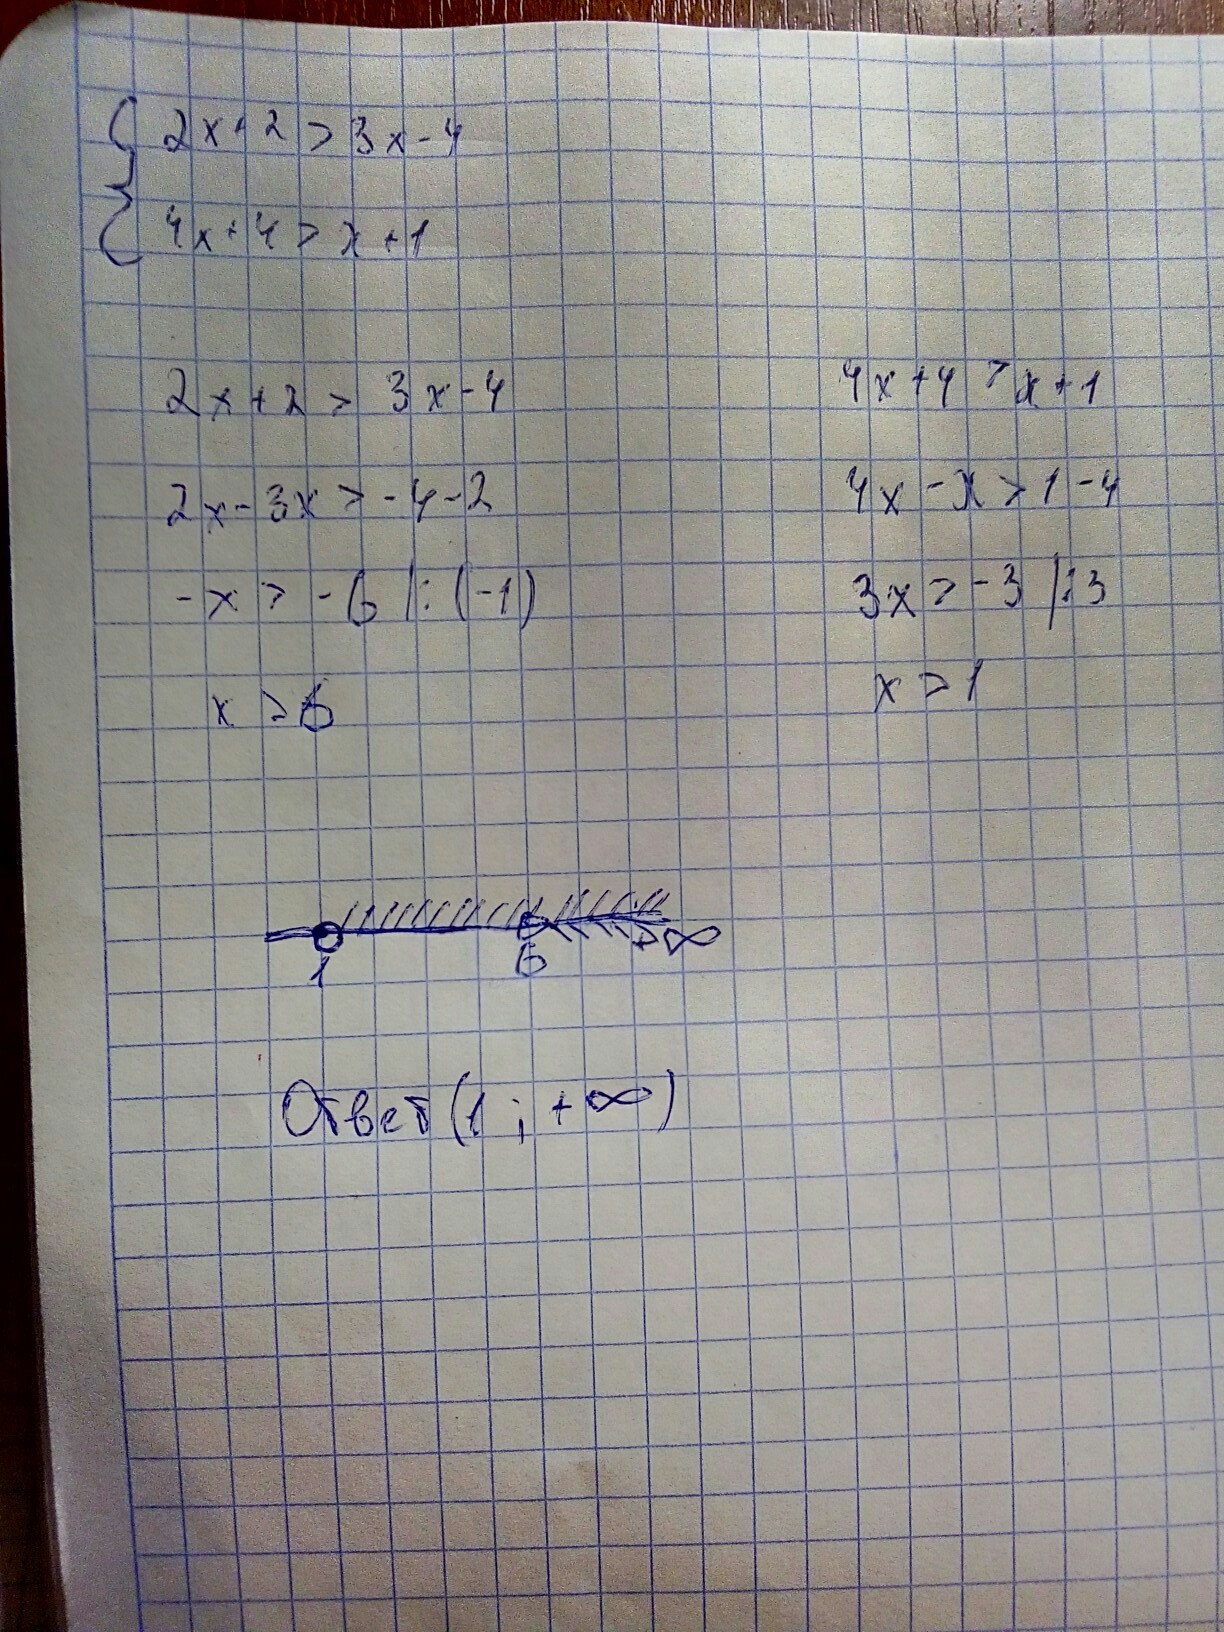 2x+2 > 3x-4
4x+4 > x+1
2x+2 > 3x-4
2x-3x > -4-2
-x > -6 |:(-1)
x > 6
4x+4 > x+1
4x-x > 1-4
3x > -3 |:3
x > 1
1 6 +∞
Ответ (1; +∞)